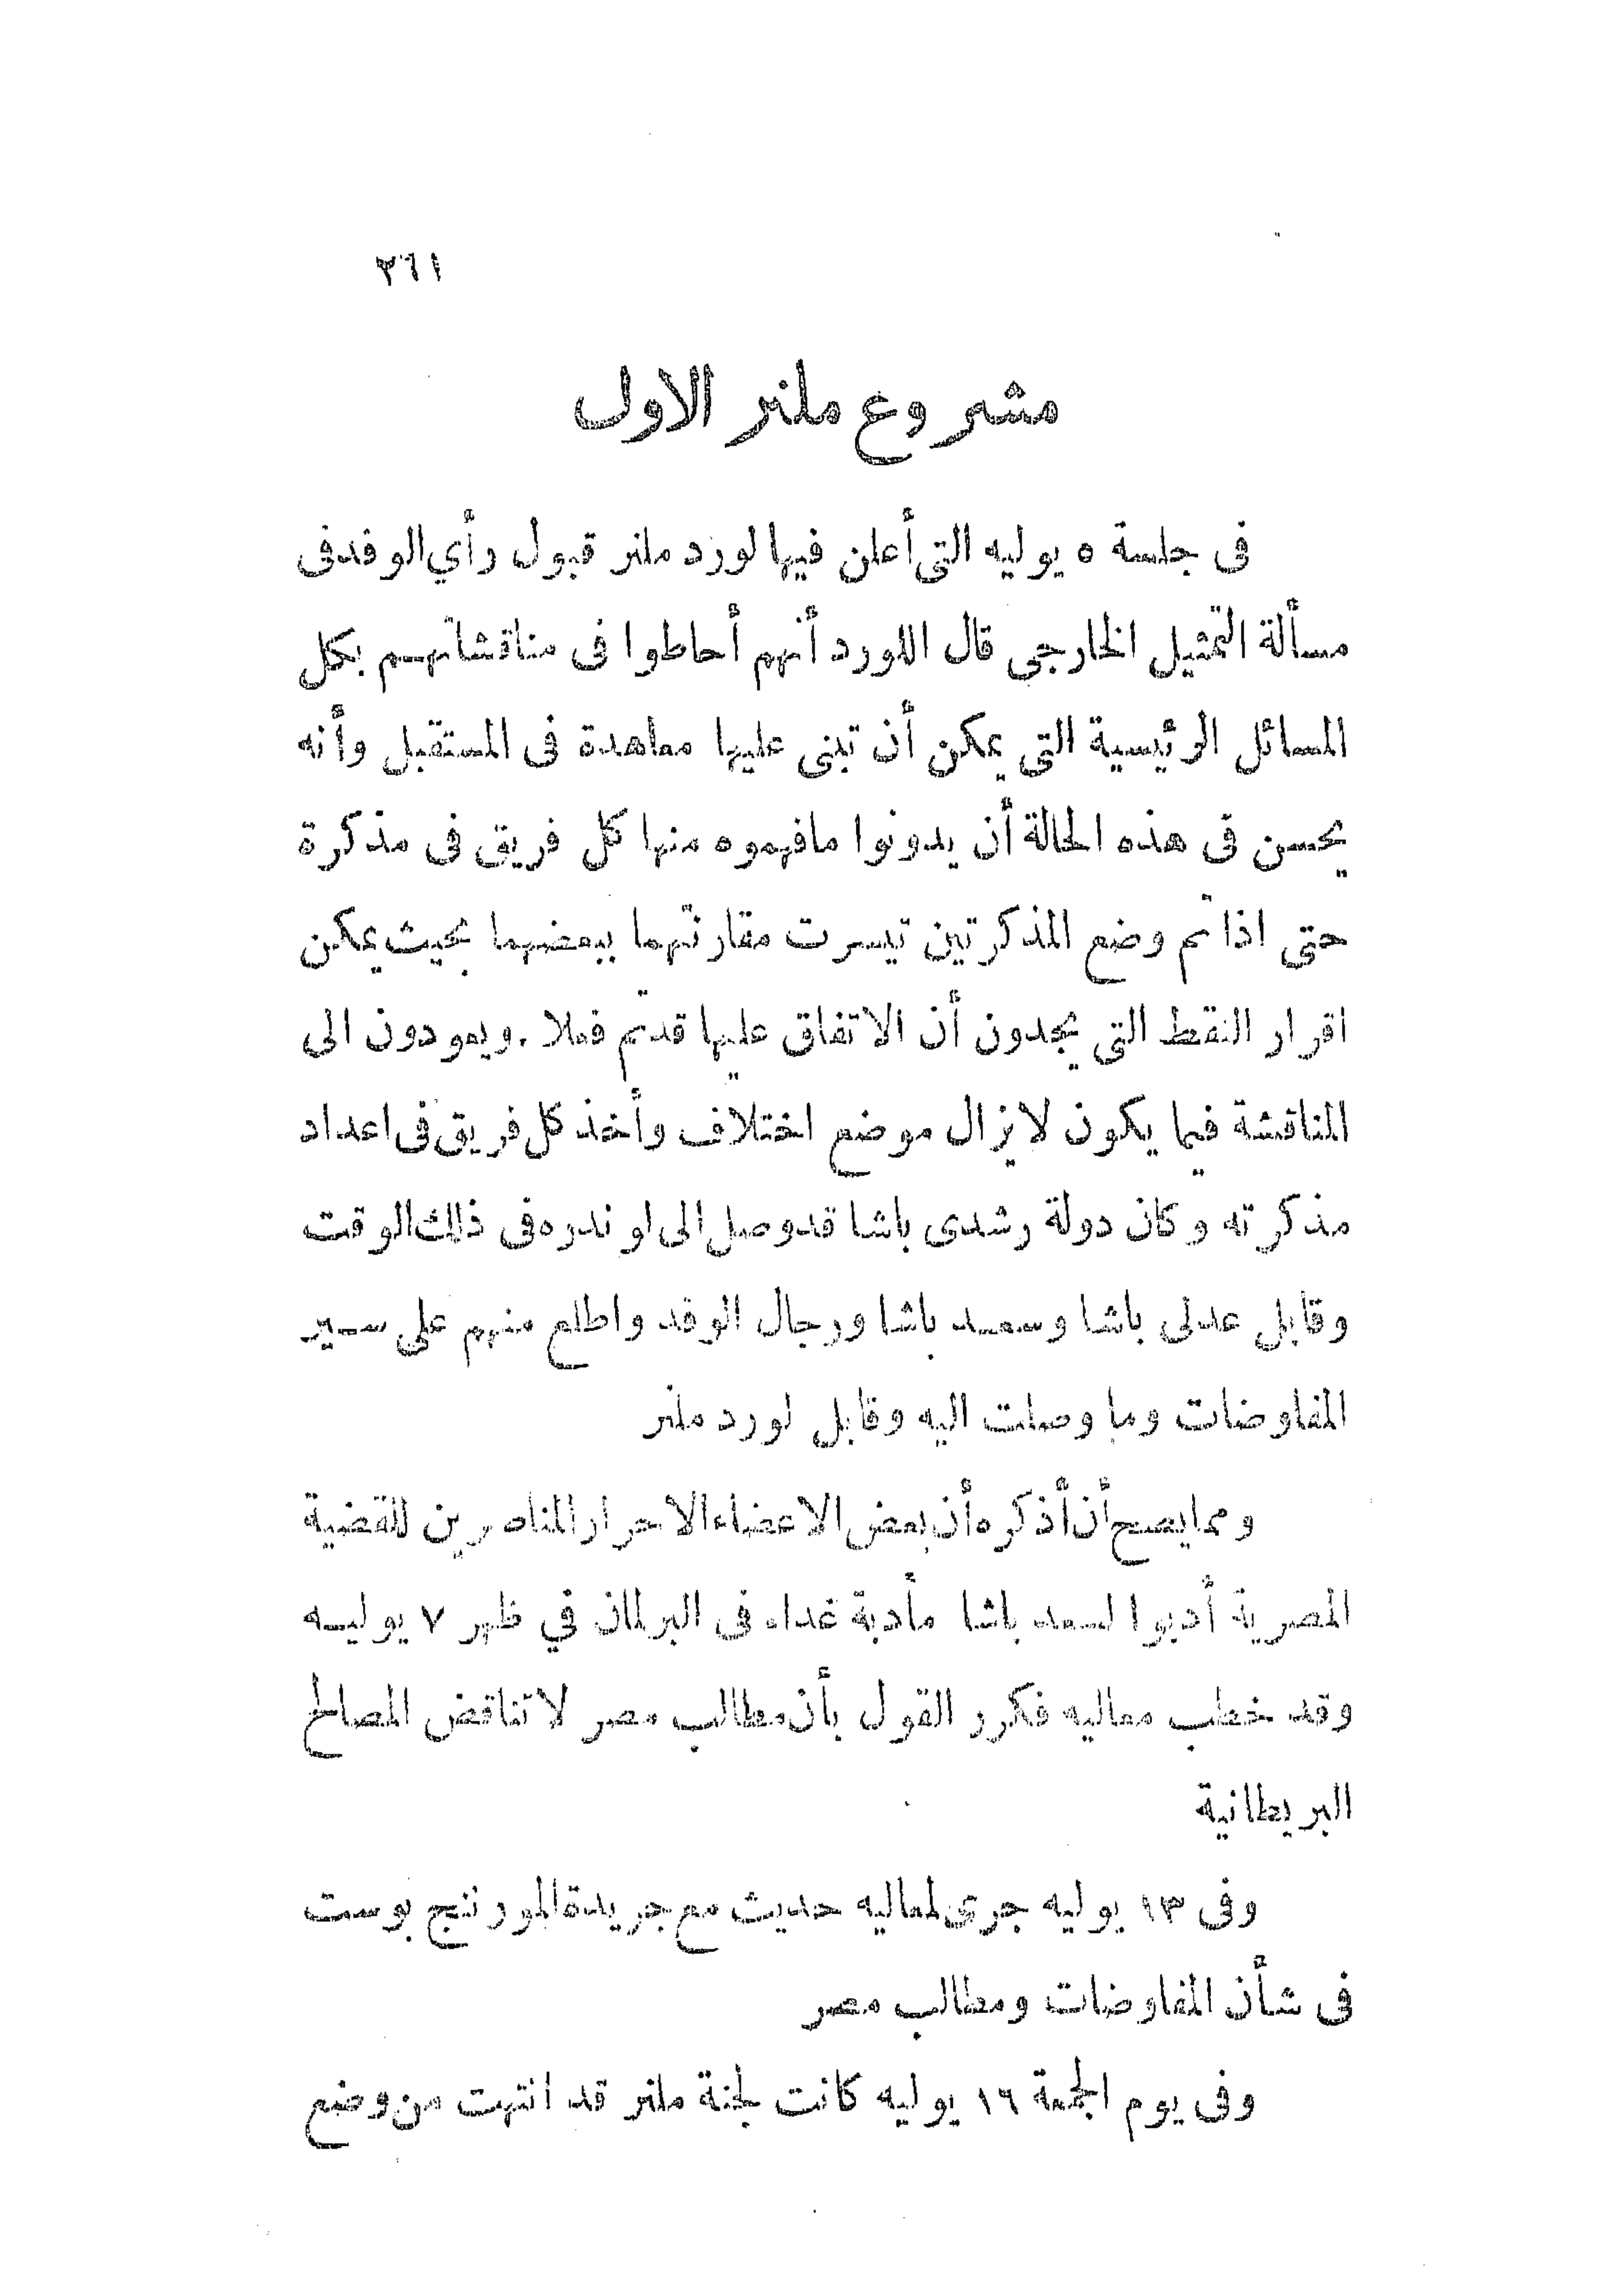 ٣٦١
مشروع ملنر الاول
فى جلسة ٥ يوليه التى أعلن فيها لورد ملنر قبول رأي الوفد فى
مسألة التمثيل الخارجى قال اللورد أنهم أحاطوا فى مناقشاتهم بكل
المسائل الرئيسية التى يمكن أن تبنى عليها معاهدة فى المستقبل وأنه
يحسن فى هذه الحالة أن يدونوا مافهموه منها كل فريق فى مذكرة
حتى اذا تم وضع المذكرتين تيسرت مقارنتهما ببعضهما بحيث يمكن
اقرار النقط التى يجدون أن الاتفاق عليها قد تم فعلا . ويعودون الى
المناقشة فيما يكون لايزال موضع اختلاف وأخذ كل فريق فى اعداد
مذكرته وكان دولة رشدى باشا قد وصل الى لوندره فى ذلك الوقت
وقابل عدلى باشا وسعيد باشا ورجال الوفد واطلع منهم على سير
المفاوضات وما وصلت اليه وقابل لورد ملنر
ومما يصح أن أذكره أن بعض الاعضاء الاحرار المناصرين للقضية
المصرية أدبوا لسعد باشا مأدبة غداء فى البرلمان في ظهر ٧ يوليه
وقد خطب معاليه فكرر القول بأن مطالب مصر لا تناقض المصالح
البريطانية
وفى ١٣ يوليه جرى لمعاليه حديث مع جريدة المورننج بوست
فى شأن المفاوضات ومطالب مصر
وفى يوم الجمعة ١٦ يوليه كانت لجنة ملنر قد انتهت من وضع